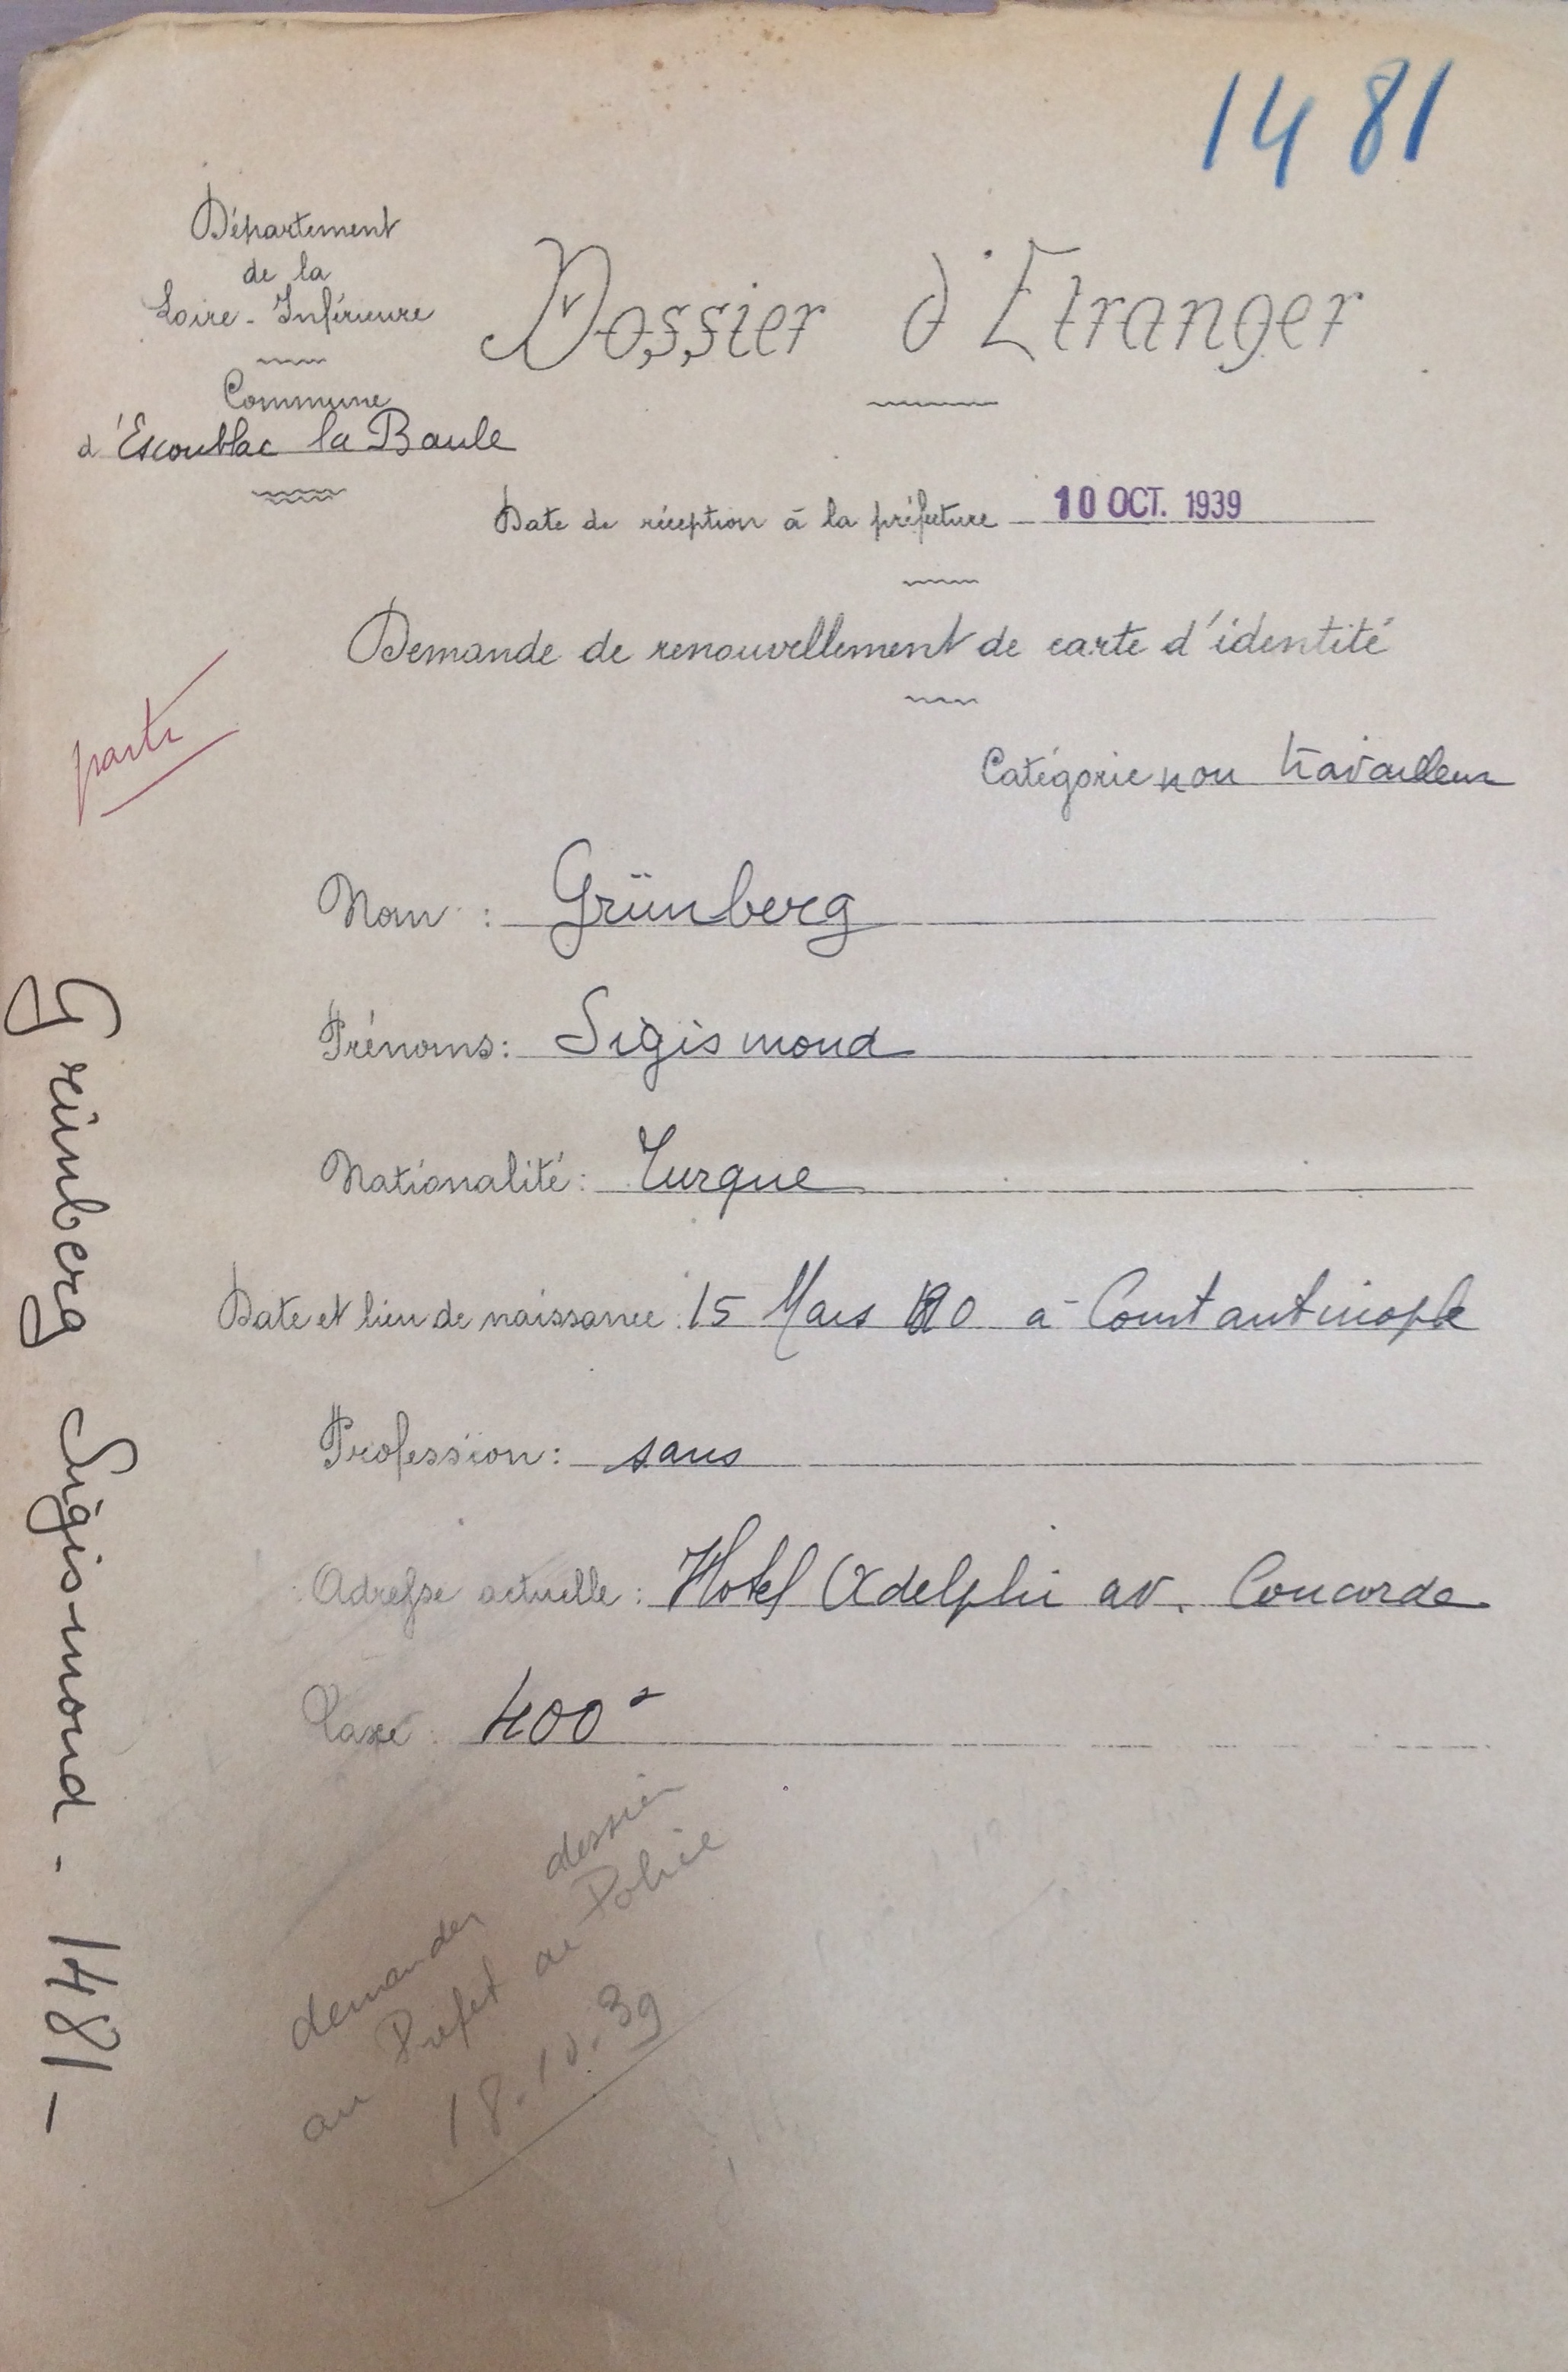 1481
Département
de la
Loire-Inférieure
Commune
d'Escoublac la Baule
Dossier d'Etranger
Date de réception à la préfecture 10 OCT. 1939
Demande de renouvellement de carte d'identité
parti
Catégorie non travailleur
Nom : Grünberg
Prénoms : Sigismond
Nationalité : Turque
Date et lieu de naissance : 15 Mars à Constantinople
Profession : sans
Adresse actuelle : Hotel Adelphi av. Concorde
Taxe : 400
demander dossier
au Préfet de Police
18.10.39
Grünberg Sigismond - 1481 -